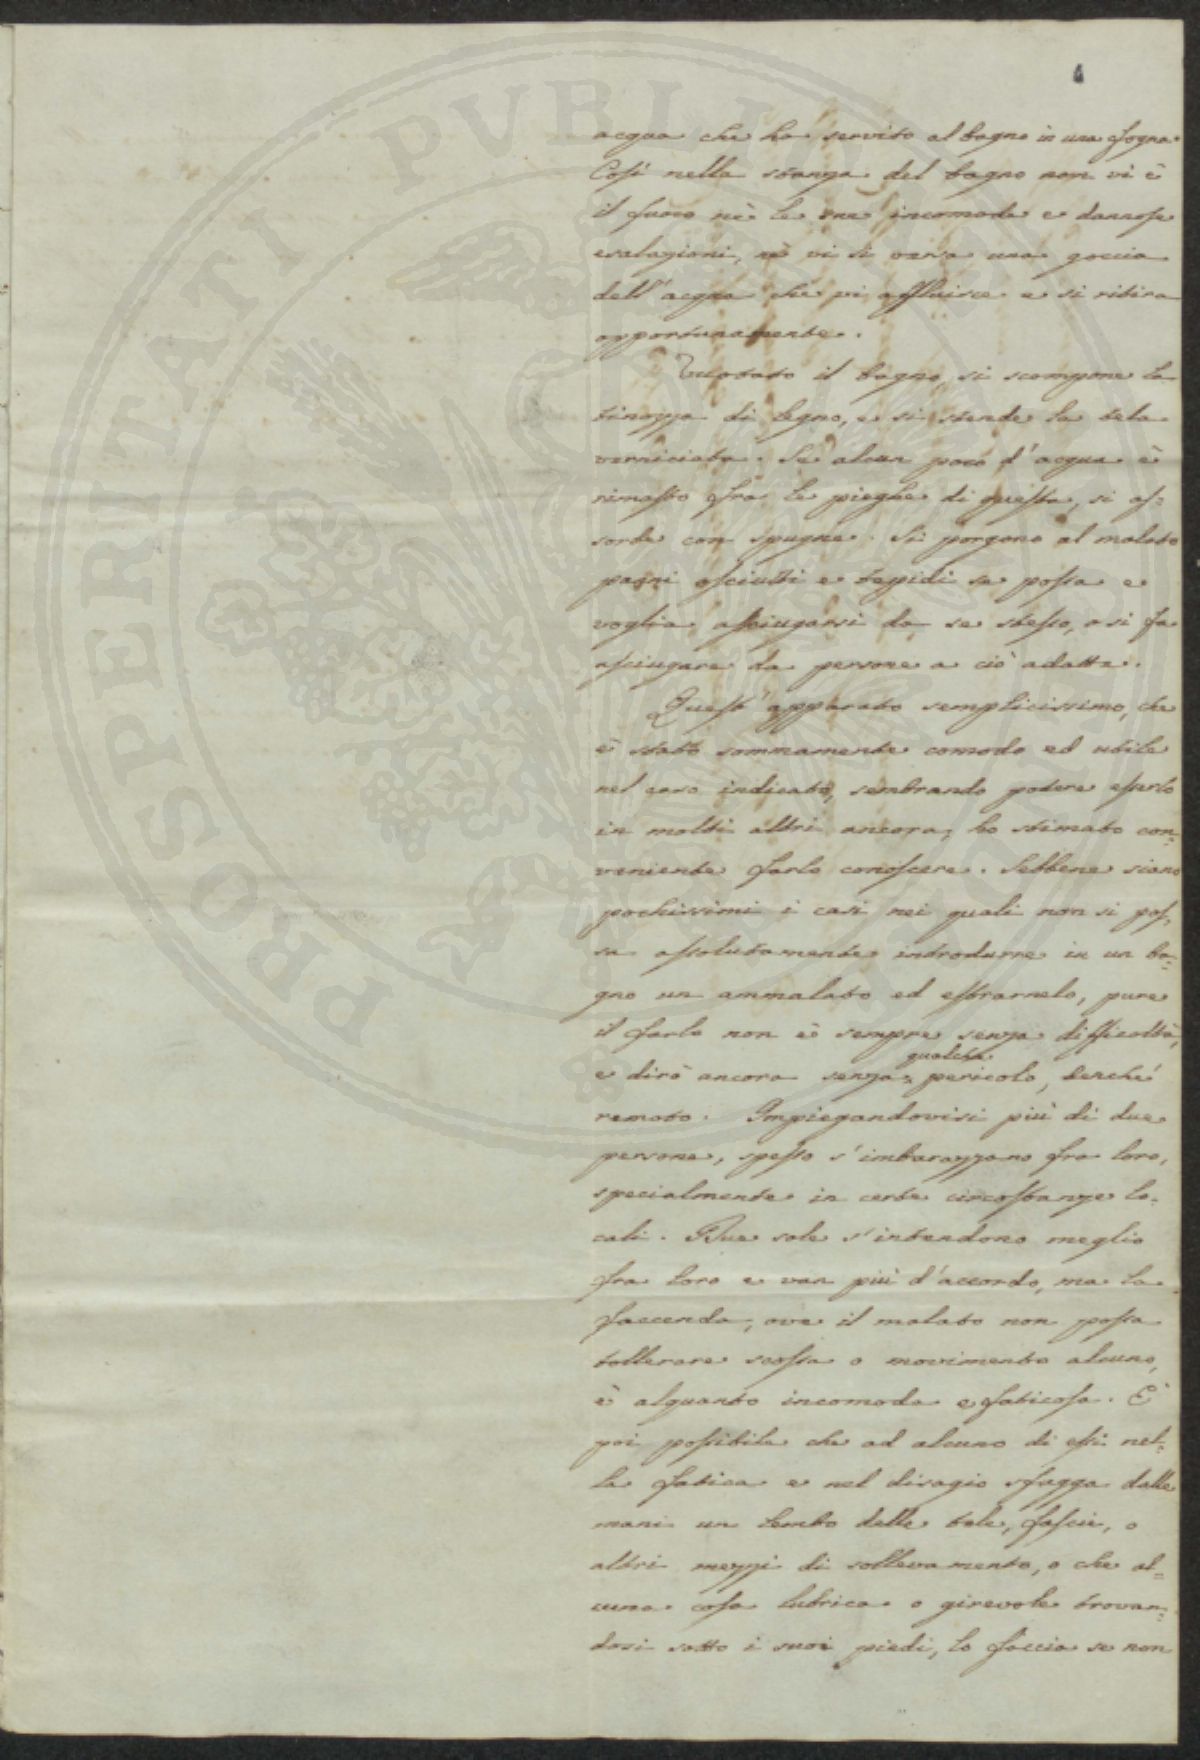 PROSPERITATI PVBLICAE AVGENDAE
acqua che ha servito al bagno in una fogna.
Così nella stanza del bagno non vi è
il fuoco nè le sue incomode e dannose
esalazioni, nè vi si versa una goccia
dell'acqua che vi affluisce e si ritira
opportunamente.
Vuotato il bagno, si scompone la
tinozza di legno, e si stende la tela
verniciata. Se alcun poco d'acqua è
rimasto fra le pieghe di questa, si as=
sorbe con spugne. Si porgono al malato
panni asciutti e tepidi se possa e
voglia asciugarsi da se stesso, o si fa
asciugare da persone a ciò adatte.
Quest'apparato semplicissimo, che
è stato sommamente comodo ed utile
nel caso indicato, sembrando potere esserlo
in molti altri ancora, ho stimato con=
veniente farlo conoscere. Sebbene siano
pochissimi i casi nei quali non si pos=
sa assolutamente introdurre in un ba=
gno un ammalato ed estrarnelo, pure
il farlo non è sempre senza difficoltà,
e dirò ancora senza qualche pericolo, benché
remoto. Impiegandovisi più di due
persone, spesso s'imbarazzano fra loro,
specialmente in certe circostanze lo=
cali. Due sole s'intendono meglio
fra loro e van più d'accordo, ma la
faccenda, ove il malato non possa
tollerare scossa o movimento alcuno,
è alquanto incomoda e faticosa. È
poi possibile che ad alcuno di essi nel=
la fatica e nel disagio sfugga dalle
mani un lembo delle tele, fascie, o
altri mezzi di sollevamento, o che al=
cuna cosa lubrica o girevole trovan=
dosi sotto i suoi piedi, lo faccia se non